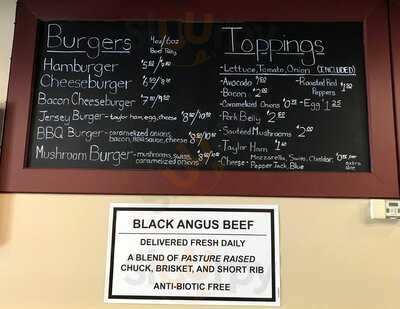 Burgers 4oz/6oz
Beef Patty
Hamburger
Cheeseburger
Bacon Cheeseburger
Jersey Burger - taylor ham, egg, cheese
BBQ Burger - caramelized onions,
bacon, BBQ sauce, cheese
Mushroom Burger - mushrooms, swiss,
caramelized onions
Toppings
- Lettuce, Tomato, Onion (INCLUDED)
- Avocado
- Roasted Red
Peppers
- Bacon
- Caramelized Onions - Egg
- Pork Belly
- Sautéed Mushrooms $2.00
- Taylor Ham
- Cheese - Mozzarella, Swiss, Cheddar,
Pepper Jack, Blue
extra
slice
BLACK ANGUS BEEF
DELIVERED FRESH DAILY
A BLEND OF PASTURE RAISED
CHUCK, BRISKET, AND SHORT RIB
ANTI-BIOTIC FREE